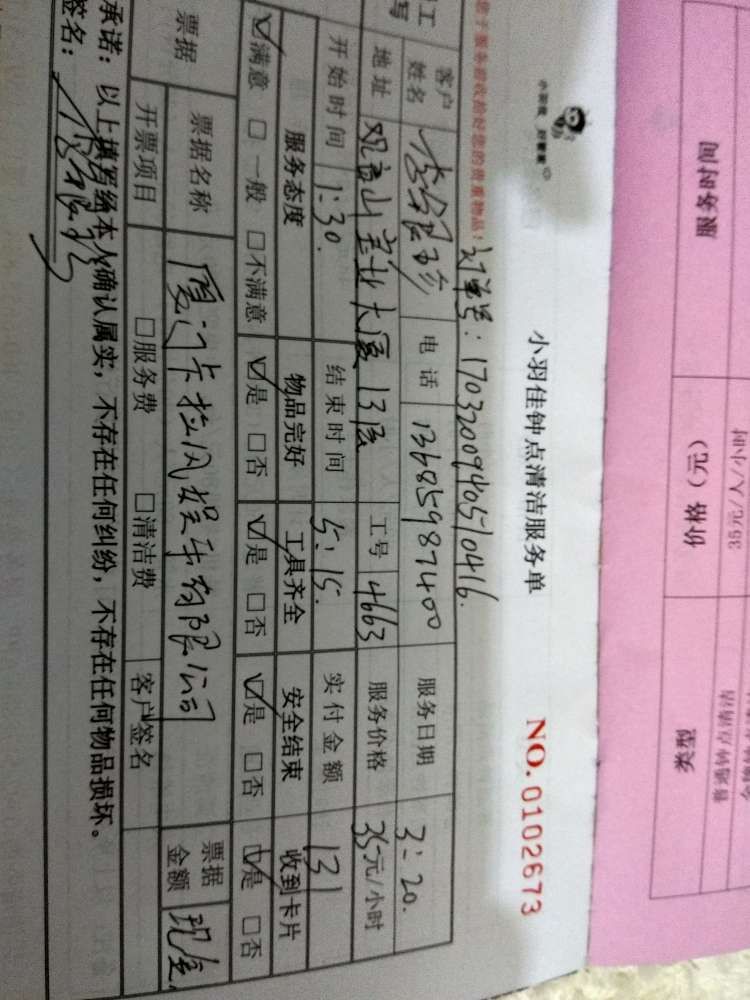 小羽佳 好管家
小羽佳钟点清洁服务单
NO.0102673
订单号：1703200940510416.
您于服务前收拾好您的贵重物品！
客户姓名
电话 13685987400
服务日期 3:20.
地址 观音山宝业大厦13层
工号 4663
服务价格 35元/小时
开始时间 1:30.
结束时间 5:15.
实付金额 131
服务态度 物品完好 工具齐全 安全结束 收到卡片
☑满意 □一般 □不满意 ☑是 □否 ☑是 □否 ☑是 □否 ☑是 □否
票据 票据名称 厦门卡拉风娱乐有限公司 票据金额 现金
开票项目 □服务费 □清洁费 客户签名
承诺：以上填写经本人确认属实，不存在任何纠纷，不存在任何物品损坏。
签名：
类型 价格（元） 服务时间
普通钟点清洁 35元/人/小时